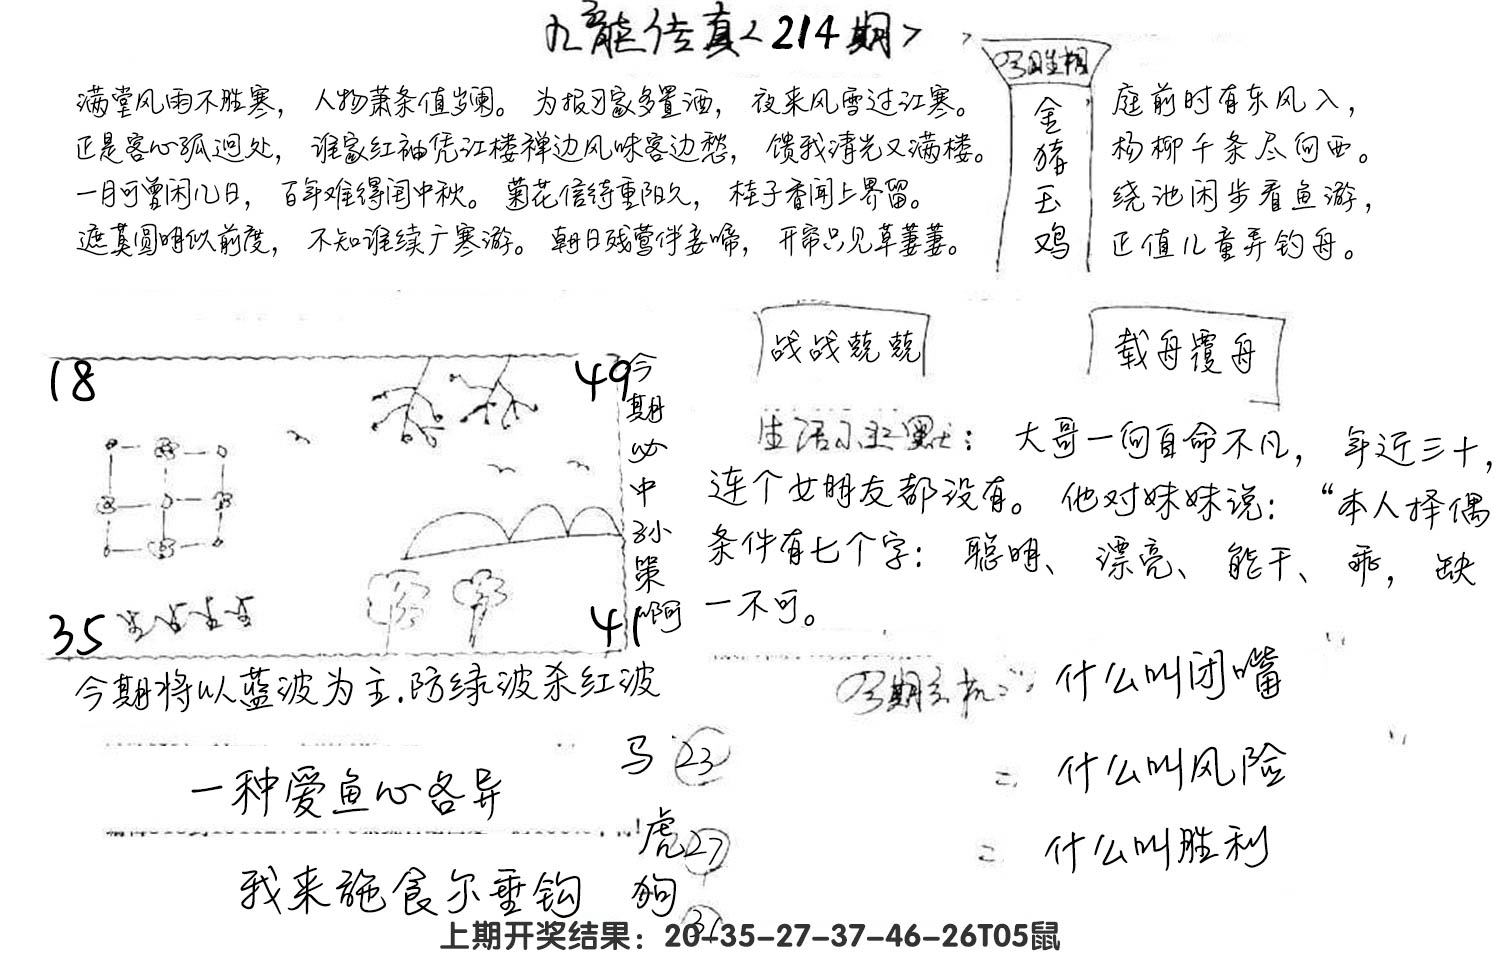 九龙传真<214期>
今期生相
金猪玉鸡
满堂风雨不胜寒，人物萧条值岁阑。为报习家多置酒，夜来风雪过江寒。
正是客心孤迥处，谁家红袖凭江楼禅边风味客边愁，馈我清光又满楼。
一月可曾闲几日，百年难得闰中秋。菊花信待重阳久，桂子香闻上界留。
遮莫圆明似前度，不知谁续广寒游。朝日残莺伴妾啼，开帘只见草萋萋。
庭前时有东风入，
杨柳千条尽向西。
绕池闲步看鱼游，
正值儿童弄钓舟。
战战兢兢
载舟覆舟
18
49
35
41
今期必中孙策啊
生活小幽默：大哥一向自命不凡，年近三十，
连个女朋友都没有。他对妹妹说：“本人择偶
条件有七个字：聪明、漂亮、能干、乖，缺
一不可。
今期将以蓝波为主.防绿波杀红波
今期玄机：什么叫闭嘴
什么叫风险
什么叫胜利
一种爱鱼心各异
我来施食尔垂钩
马 23
虎 27
狗 31
上期开奖结果：20-35-27-37-46-26T05鼠